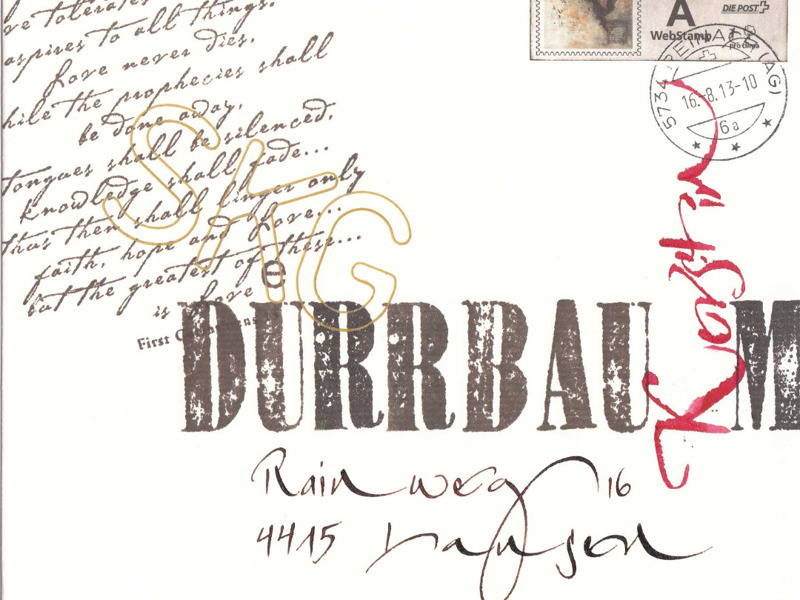 ve tolerates
aspires to all things.
Love never dies.
hile the prophecies shall
be done away,
Tongues shall be silenced,
knowledge shall fade...
Thus then shall linger only
faith, hope and Love...
but the greatest of these...
is Love
First
A
WebStamp
DIE POST
5734 REINACH (AG)
16.-8.13-10
6a
STG
DURRBAU M
Rainweg 16
4415 Lausen